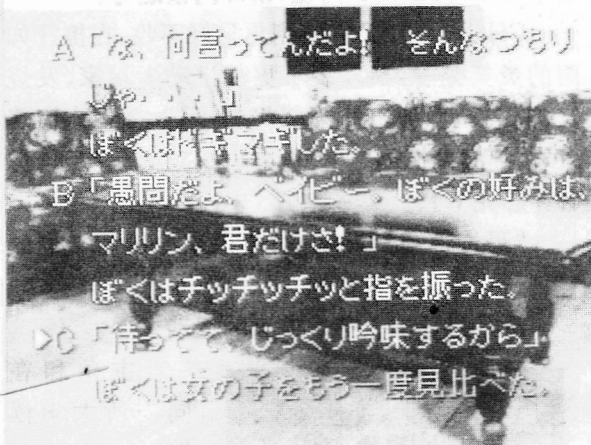 A「な、何言ってんだよ！ そんなつもり
じゃ・・・」
ぼくはドギマギした。
B「愚問だよ、ベイビー、ぼくの好みは、
マリリン、君だけさ！」
ぼくはチッチッチッと指を振った。
▶C「待ってて、じっくり吟味するから」
ぼくは女の子をもう一度見比べた。